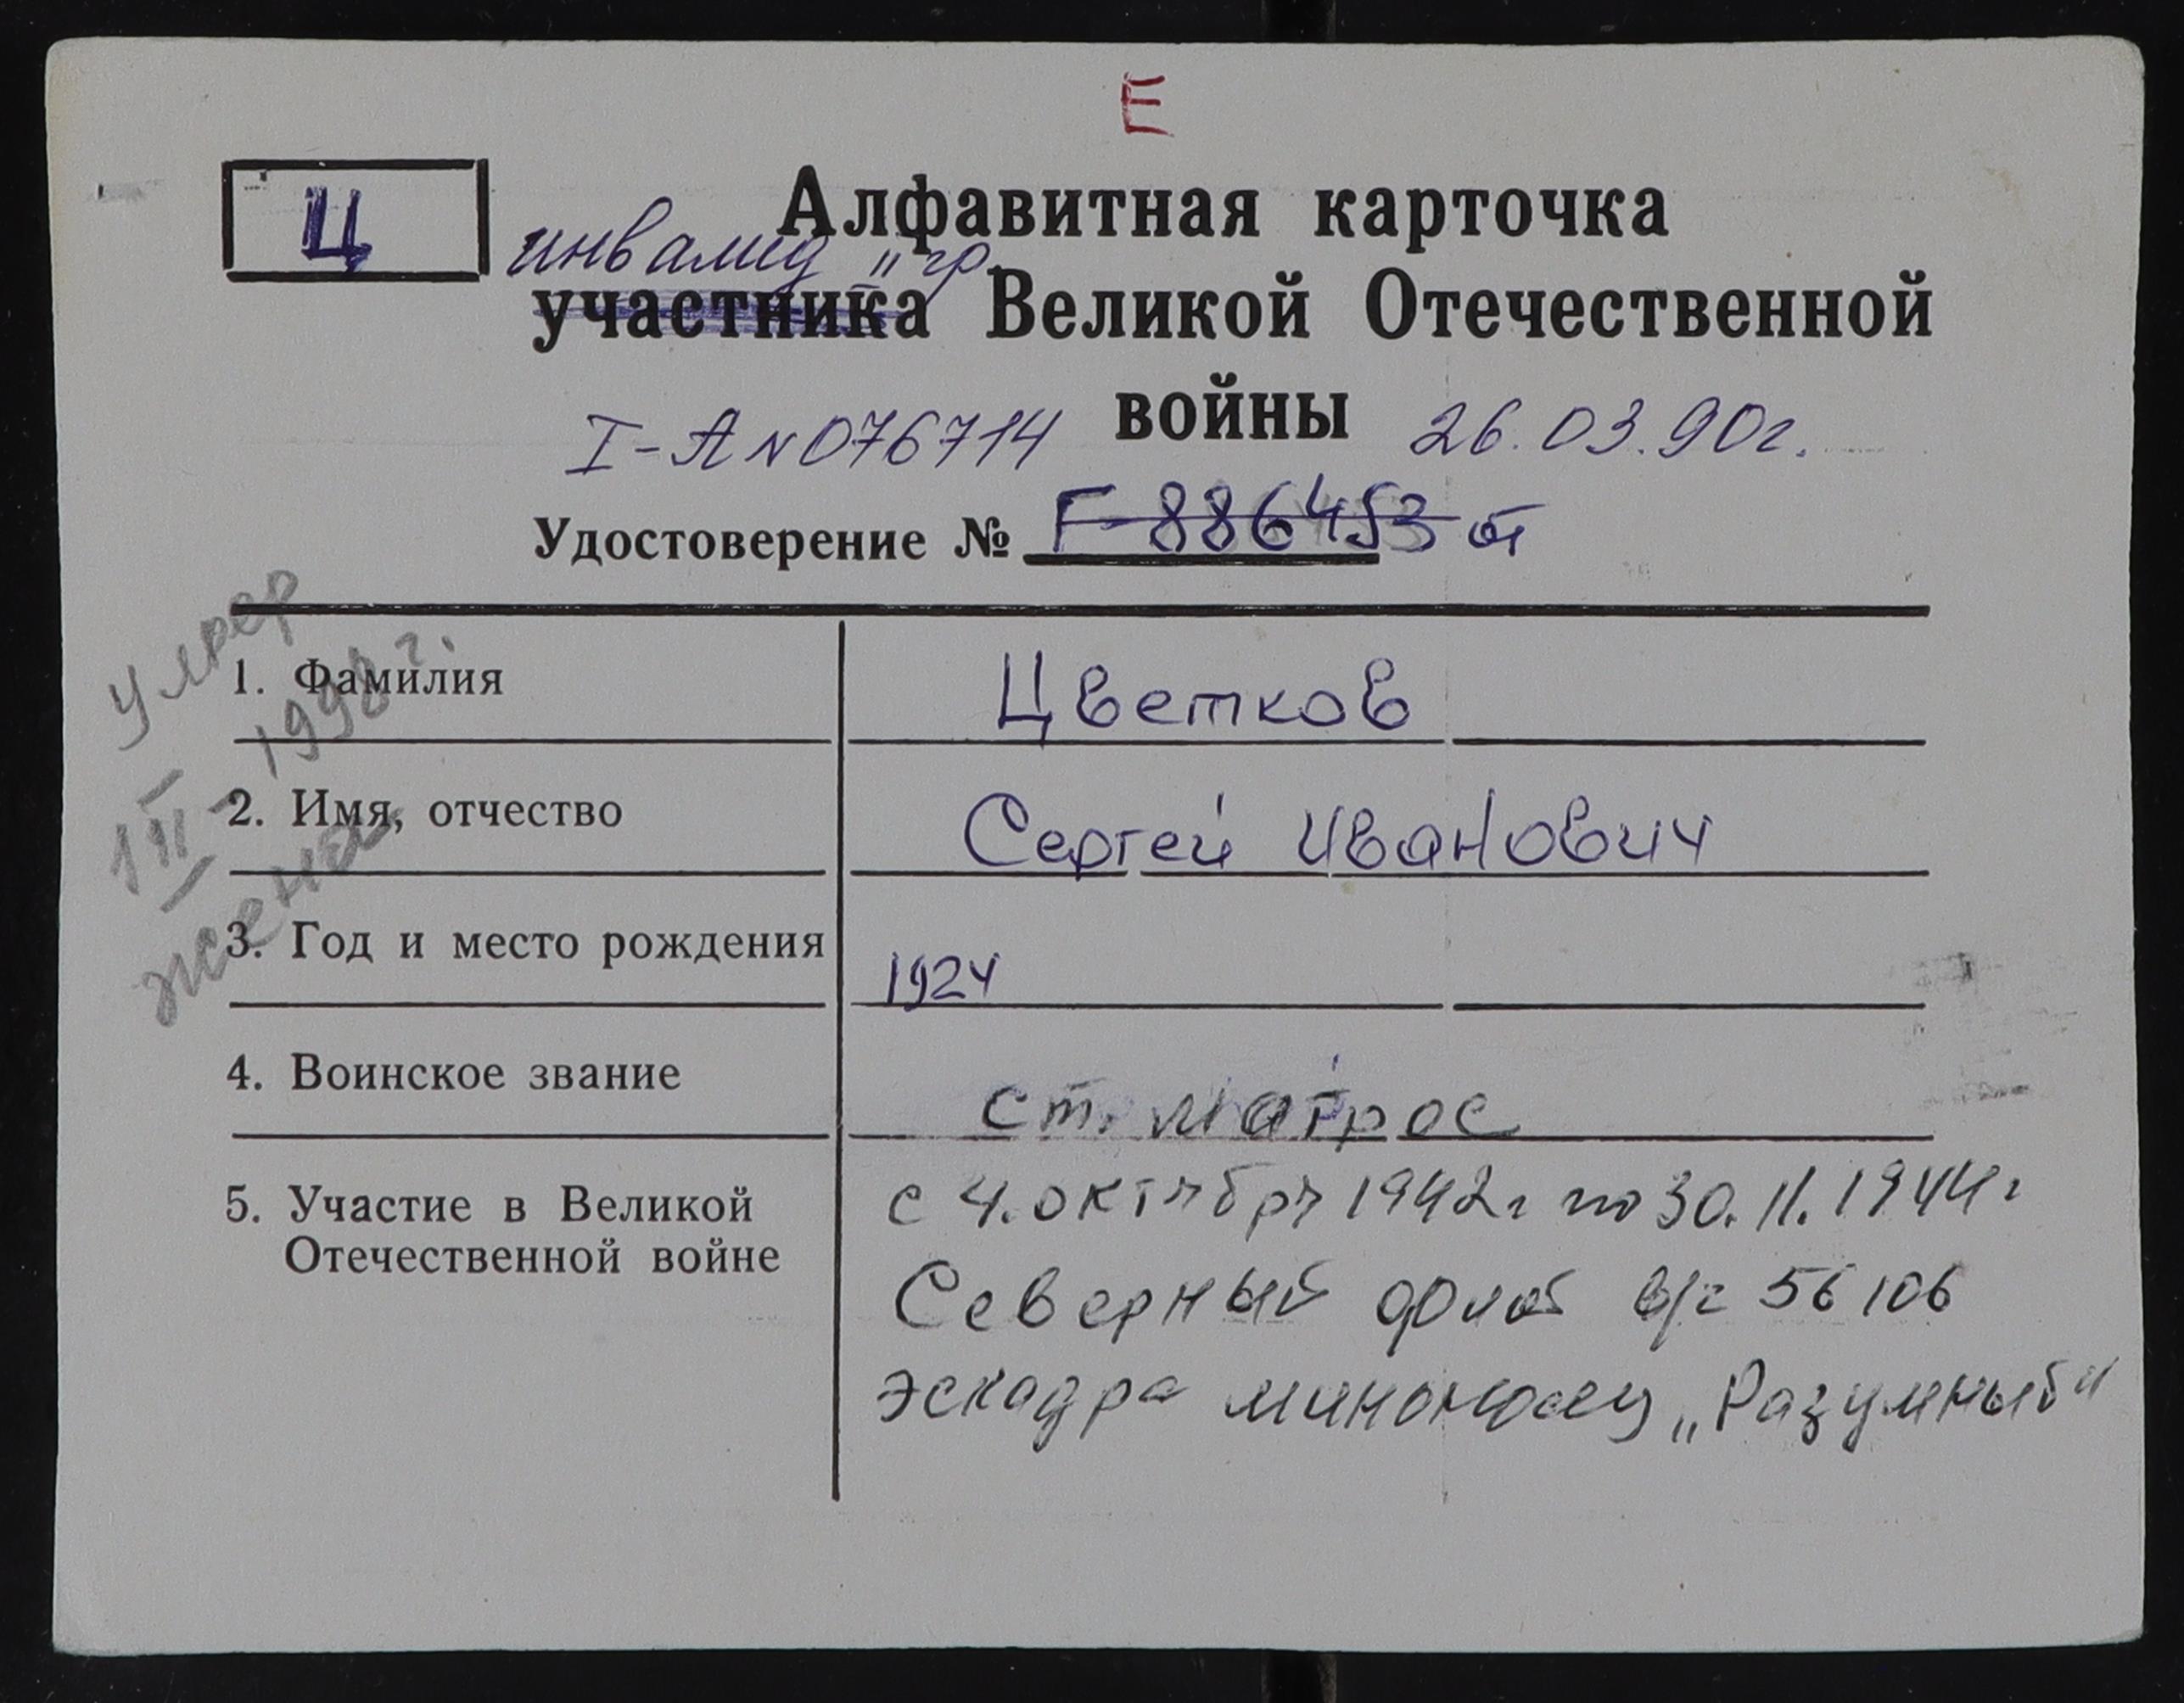 Е
Ц
Алфавитная карточка
инвалид II гр.
участника Великой Отечественной
войны
I-А N 076714 26.03.90г.
Удостоверение № Г-886453 от
умер
1998 г.
1. Фамилия Цветков
2. Имя, отчество Сергей Иванович
жена
3. Год и место рождения 1924
4. Воинское звание ст. матрос
5. Участие в Великой Отечественной войне
с 4. октября 1942г по 30.11.1944г
Северный флот в/ч 56106
эскадра миноносец „Разумный"